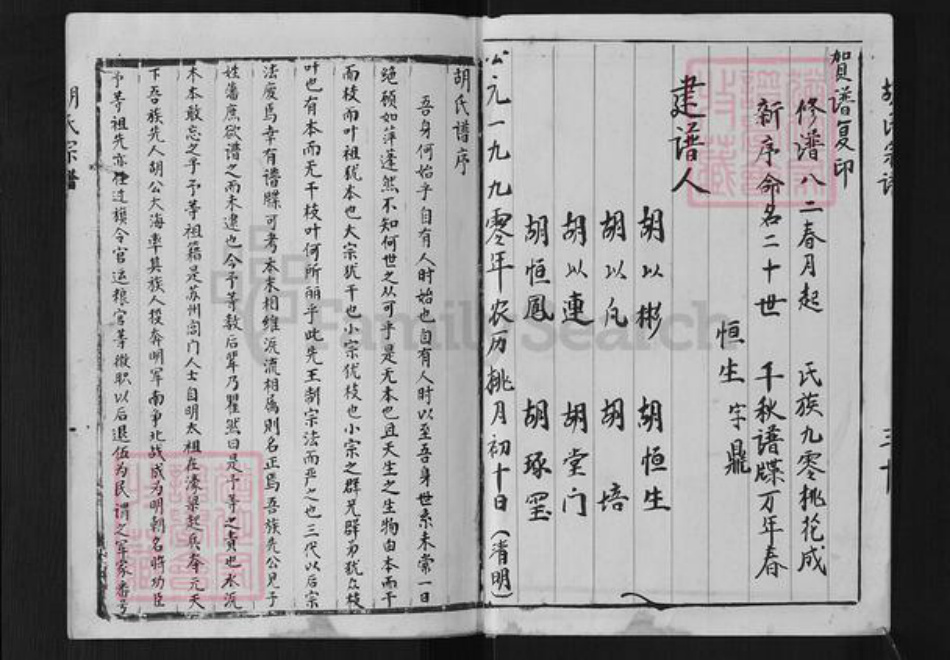 賀譜复印
修譜八二春月起 氏族九零桃花成
新序命名二十世 千秋譜牒万年春
恒生 字鼎
建譜人
胡以彬 胡恒生
胡以凡 胡培
胡以連 胡堂门
胡恒鳳 胡琢璽
公元一九九零年农历桃月初十日（清明）
胡氏譜序
吾身何始乎自有人时始也自有人时以至吾身世系未常一日
绝顾如萍蓬然不知何世之从可乎是无本也且天生之生物由本而干
而枝而叶祖犹本也大宗犹干也小宗犹枝也小宗之群兄群弟犹众枝
叶也有本而无干枝叶何所丽乎此先王制宗法而严之也三代以后宗
法废焉幸有譜牒可考本末相维派流相属则名正焉吾族先公见予
姓蕃庶欲譜之而未逮也今予等数后辈乃瞿然曰是予等之責也水沅
木本敢忘之乎予等祖籍是苏州閶门人士自明太祖在濠梁起兵奪元天
下吾族先人胡公大海率其族人投奔明军南争北战成为明朝名将功臣
予等祖先亦任过旗令官运粮官等微职以后退伍为民谓之军家番号
胡氏宗譜
Family Search